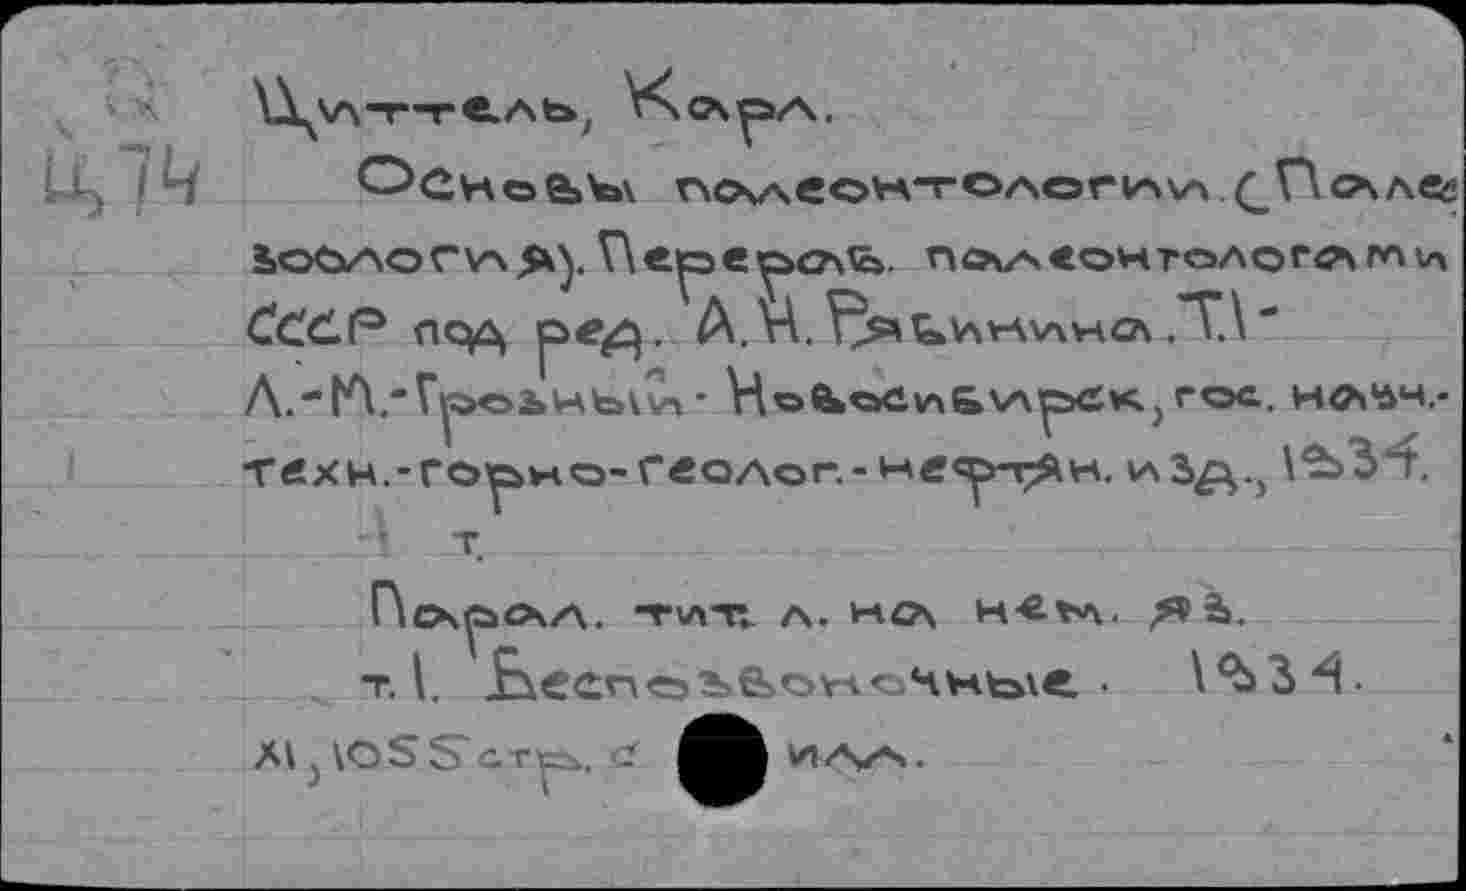 Ц74
Циттель, Карл.
Основы палеонтологии. (Палео
зоология). Перераб. палеонтологами
СССР под ред. А.Н. Рябинина. Т.1-
Л.-М.-Грозный-Новосибирск, гос. научн.-
техн.-горно-геолог.-нефтян. изд., 1934.
1 т.
Парал. тит. л. на нем. яз.
т. 1. Беспозвоночные. 1934.
XI, 1055 стр. с илл.